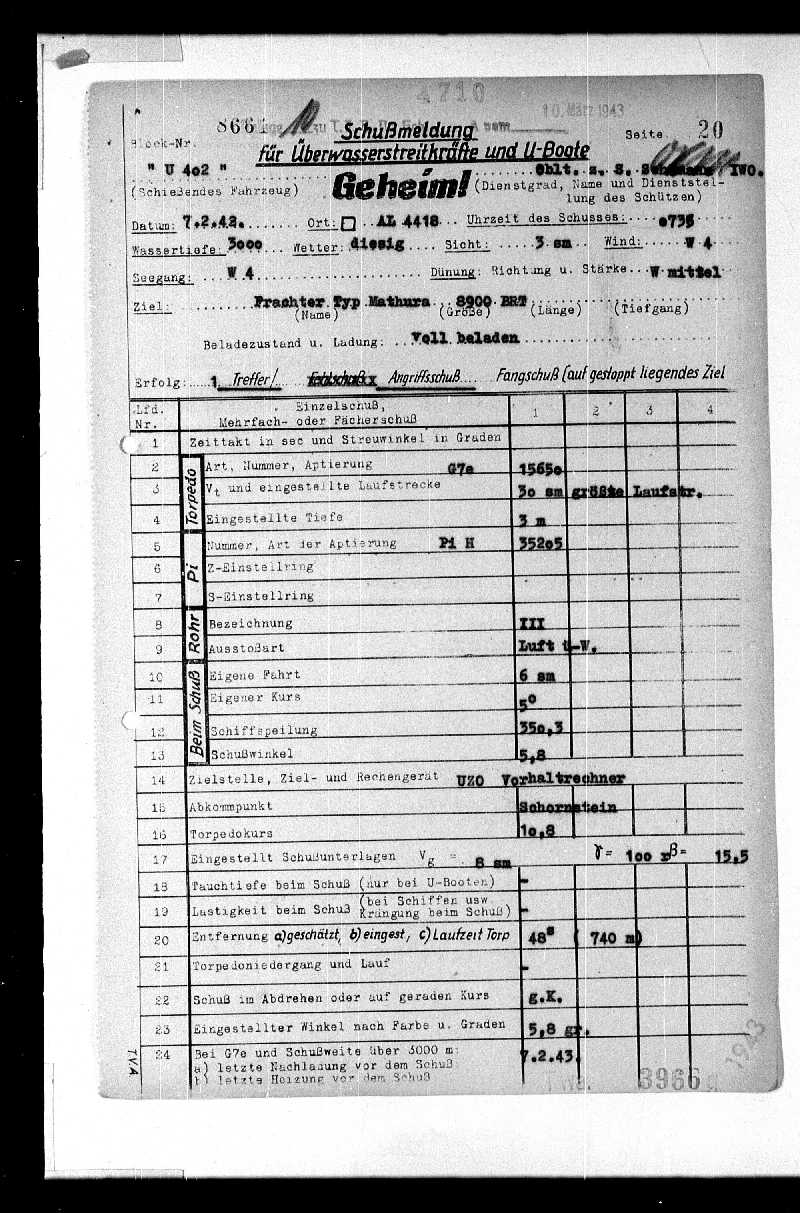 4710
8661 10 zu T. 10. März 1943
Schußmeldung
Block-Nr. Seite 20
für Überwasserstreitkräfte und U-Boote
" U 4o2 " Oblt. z. S. IWO.
(Schießendes Fahrzeug) Geheim! (Dienstgrad, Name und Dienststel-
lung des Schützen)
Datum: 7.2.43. Ort: AL 4418 Uhrzeit des Schusses: o735
Wassertiefe: 3ooo Wetter: diesig Sicht: 3 sm Wind: W 4
Seegang: W 4 Dünung: Richtung u. Stärke W mittel
Ziel: Frachter Typ Mathura 89oo BRT
(Name) (Größe) (Länge) (Tiefgang)
Beladezustand u. Ladung: Voll beladen
Erfolg: 1 Treffer/ Fehlschuß x Angriffsschuß Fangschuß (auf gestoppt liegendes Ziel
Lfd. Nr. Einzelschuß, Mehrfach- oder Fächerschuß 1 2 3 4
1 Zeittakt in sec und Streuwinkel in Graden
Torpedo
2 Art, Nummer, Aptierung G7e 1565o
3 Vt und eingestellte Laufstrecke 3o sm größte Laufstr.
4 Eingestellte Tiefe 3 m
Pi
5 Nummer, Art der Aptierung Pi H 352o5
6 Z-Einstellring
7 S-Einstellring
Rohr
8 Bezeichnung III
9 Ausstoßart Luft t-W.
Beim Schuß
10 Eigene Fahrt 6 sm
11 Eigener Kurs 5°
12 Schiffspeilung 35o,3
13 Schußwinkel 5,8
14 Zielstelle, Ziel- und Rechengerät UZO Vorhaltrechner
15 Abkommpunkt Schornstein
16 Torpedokurs 1o,8
17 Eingestellt Schußunterlagen Vg = 8 sm γ= 1oo r β= 15,5
18 Tauchtiefe beim Schuß (nur bei U-Booten) -
19 Lastigkeit beim Schuß (bei Schiffen usw. Krängung beim Schuß) -
20 Entfernung a)geschätzt, b)eingest, c) Laufzeit Torp 48s ( 740 m)
21 Torpedoniedergang und Lauf -
22 Schuß im Abdrehen oder auf geraden Kurs g.K.
23 Eingestellter Winkel nach Farbe u. Graden 5,8 gr.
24 Bei G7e und Schußweite über 3000 m: 7.2.43.
a) letzte Nachladung vor dem Schuß
b) letzte Heizung vor dem Schuß
T.V.A
1943
3966